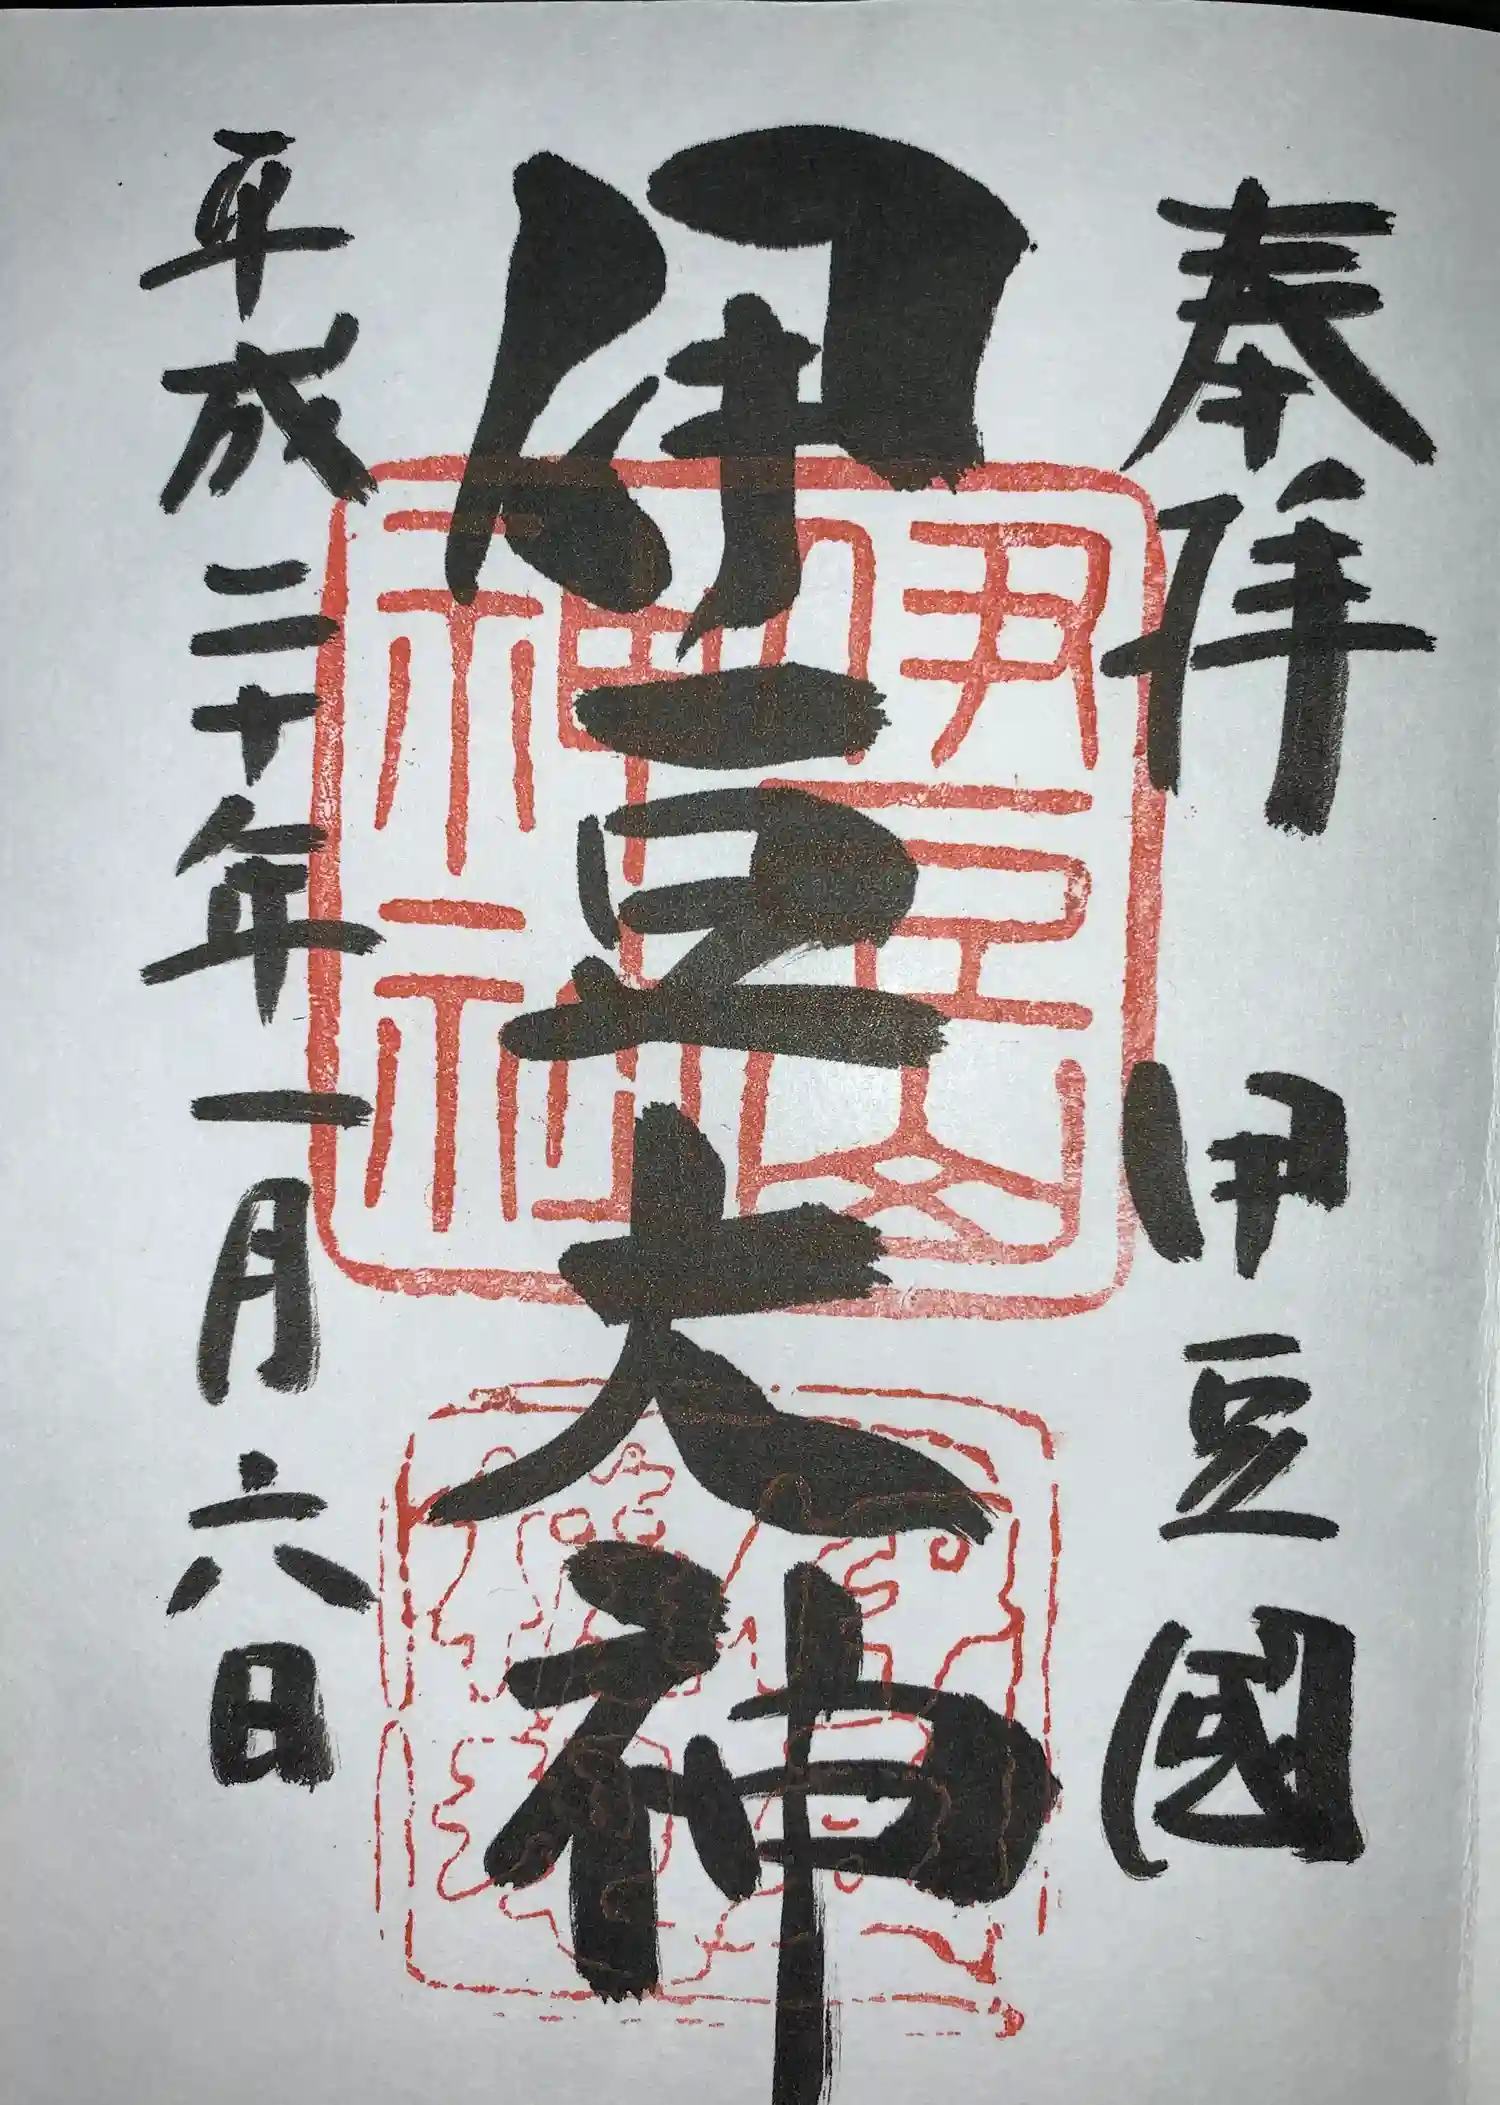 奉拝 伊豆國
伊豆大神
平成二十年一月六日
伊豆山
神社